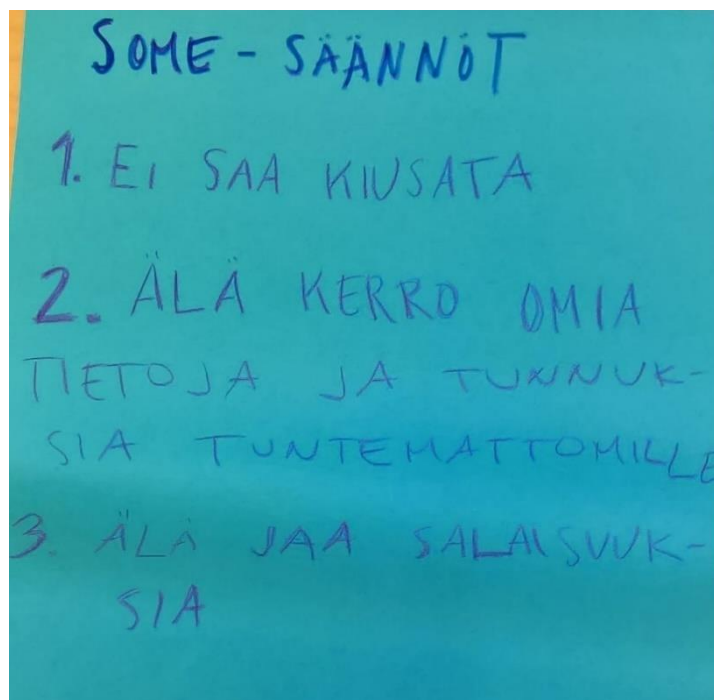 SOME - SÄÄNNÖT
1. EI SAA KIUSATA
2. ÄLÄ KERRO OMIA
TIETOJA JA TUNNUK-
SIA TUNTEMATTOMILLE
3. ÄLÄ JAA SALAISUUK-
SIA